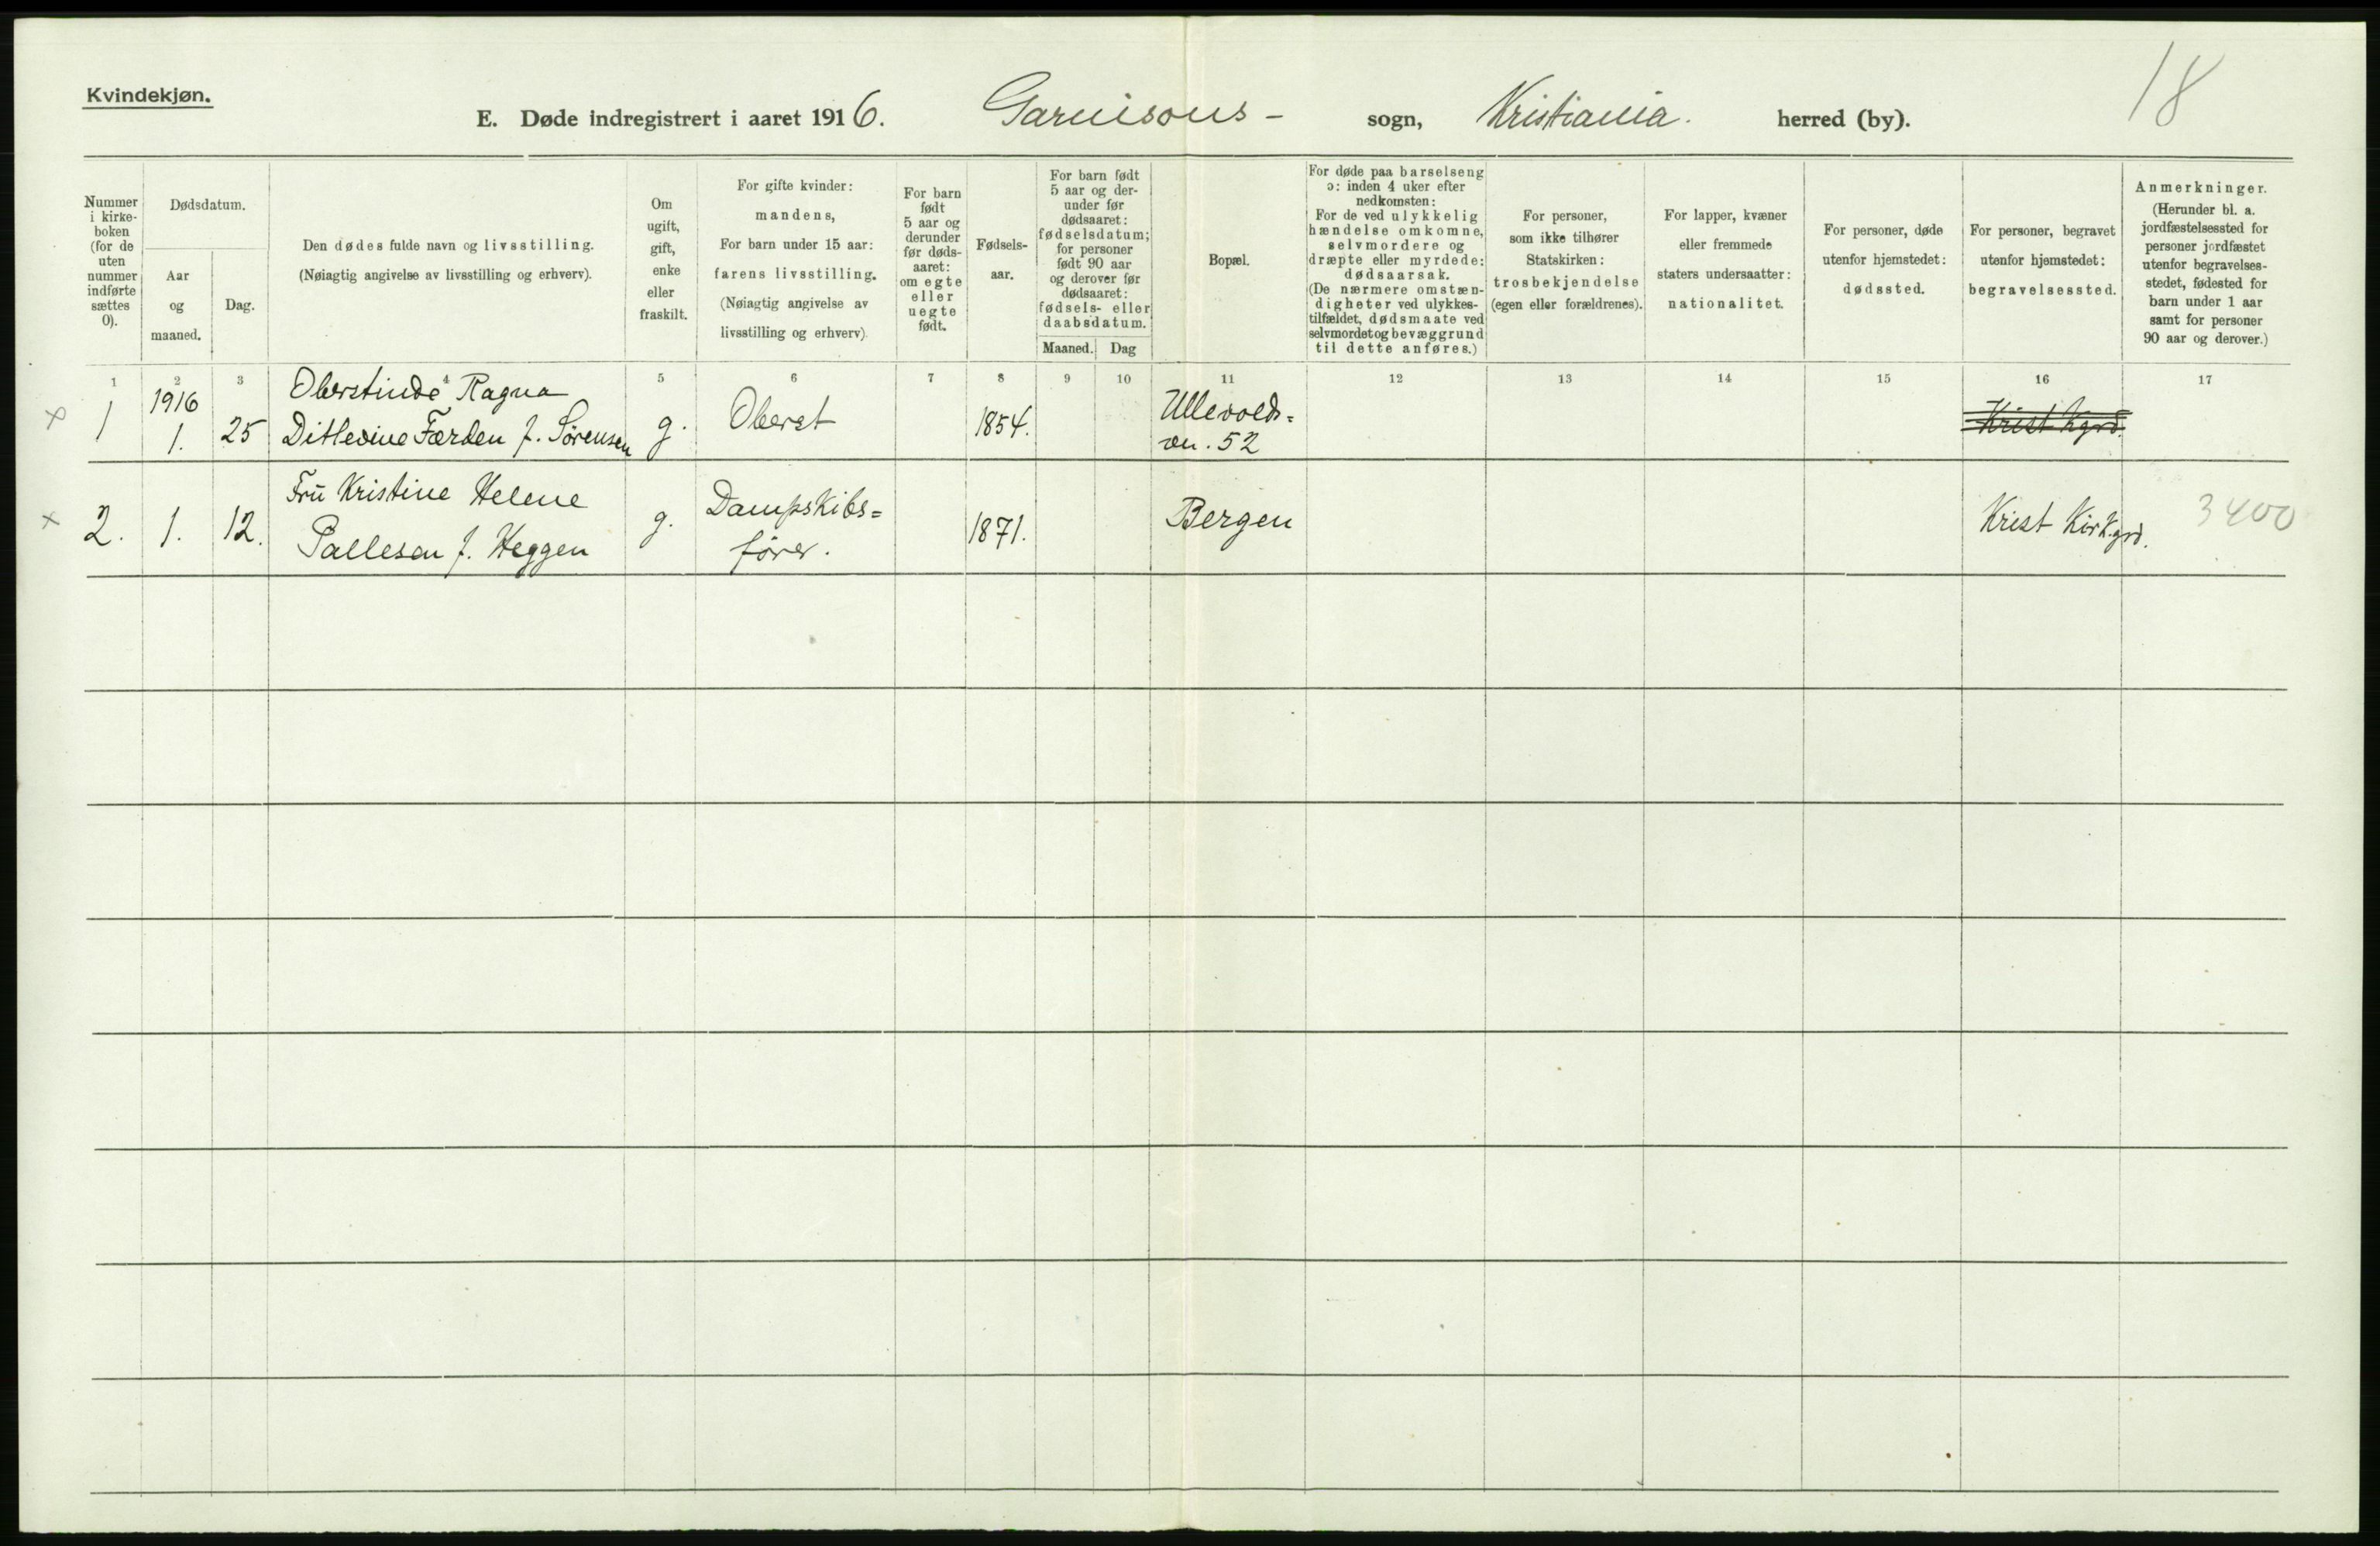 Kvindekjøn.
E. Døde indregistrert i aaret 1916. Garnisons- sogn, Kristiania. herred (by).
18
Nummer
i kirke-
boken
(for de
uten
nummer
indførte
sættes
0).
Dødsdatum.
Aar
og
maaned.
Dag.
Den dødes fulde navn og livsstilling.
(Nøiagtig angivelse av livsstilling og erhverv).
Om
ugift,
gift,
enke
eller
fraskilt.
For gifte kvinder:
mandens,
For barn under 15 aar:
farens livsstilling.
(Nøiagtig angivelse av
livsstilling og erhverv).
For barn
født
5 aar og
derunder
før døds-
aaret:
om egte
eller
uegte
født.
Fødsels-
aar.
For barn født
5 aar og der-
under før
dødsaaret:
fødselsdatum;
for personer
født 90 aar
og derover før
dødsaaret:
fødsels- eller
daabsdatum.
Maaned. Dag
Bopæl.
For døde paa barselseng
ɔ: inden 4 uker efter
nedkomsten:
For de ved ulykkelig
hændelse omkomne,
selvmordere og
dræpte eller myrdede:
dødsaarsak.
(De nærmere omstæn-
digheter ved ulykkes-
tilfældet, dødsmaate ved
selvmordet og bevæggrund
til dette anføres.)
For personer,
som ikke tilhører
Statskirken:
trosbekjendelse
(egen eller forældrenes).
For lapper, kvæner
eller fremmede
staters undersaatter:
nationalitet.
For personer, døde
utenfor hjemstedet:
dødssted.
For personer, begravet
utenfor hjemstedet:
begravelsessted.
Anmerkninger.
(Herunder bl. a.
jordfæstelsessted for
personer jordfæstet
utenfor begravelses-
stedet, fødested for
barn under 1 aar
samt for personer
90 aar og derover.)
1 2 3 4 5 6 7 8 9 10 11 12 13 14 15 16 17
x 1 1916
1. 25 Oberstinde Ragna
Ditlevine Færden f. Sørensen g. Oberst 1854. Ullevolds=
vn. 52 Krist Kgrd.
x 2. 1. 12. Fru Kristine Helene
Pallesen f. Heggen g. Dampskibs=
fører. 1871. Bergen Krist Kirkgrd. 3400